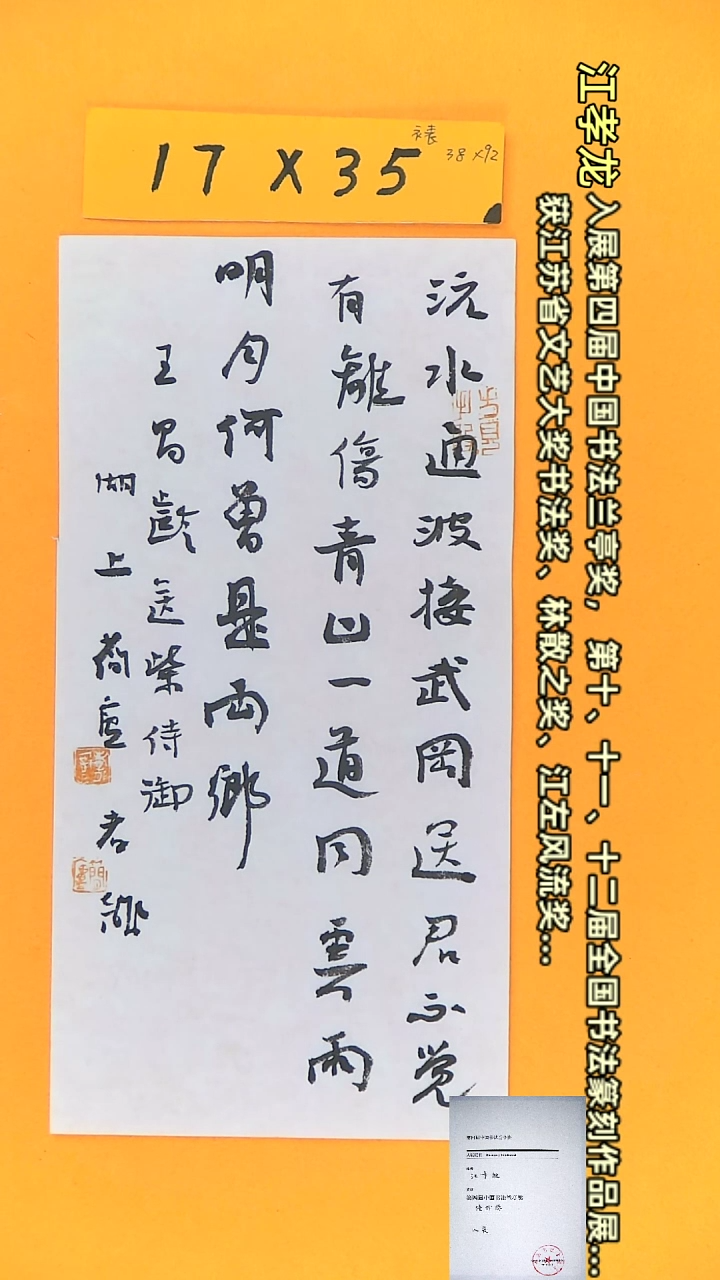 17 X 35
裱
38 X92
江孝龙 入展第四届中国书法兰亭奖，第十、十一、十二届全国书法篆刻作品展...
获江苏省文艺大奖书法奖、林散之奖、江左风流奖...
沅水通波接武岡送君不觉
有離傷青山一道同雲雨
明月何曾是兩鄉
王昌齡送柴侍御
湖上簡廬孝龍